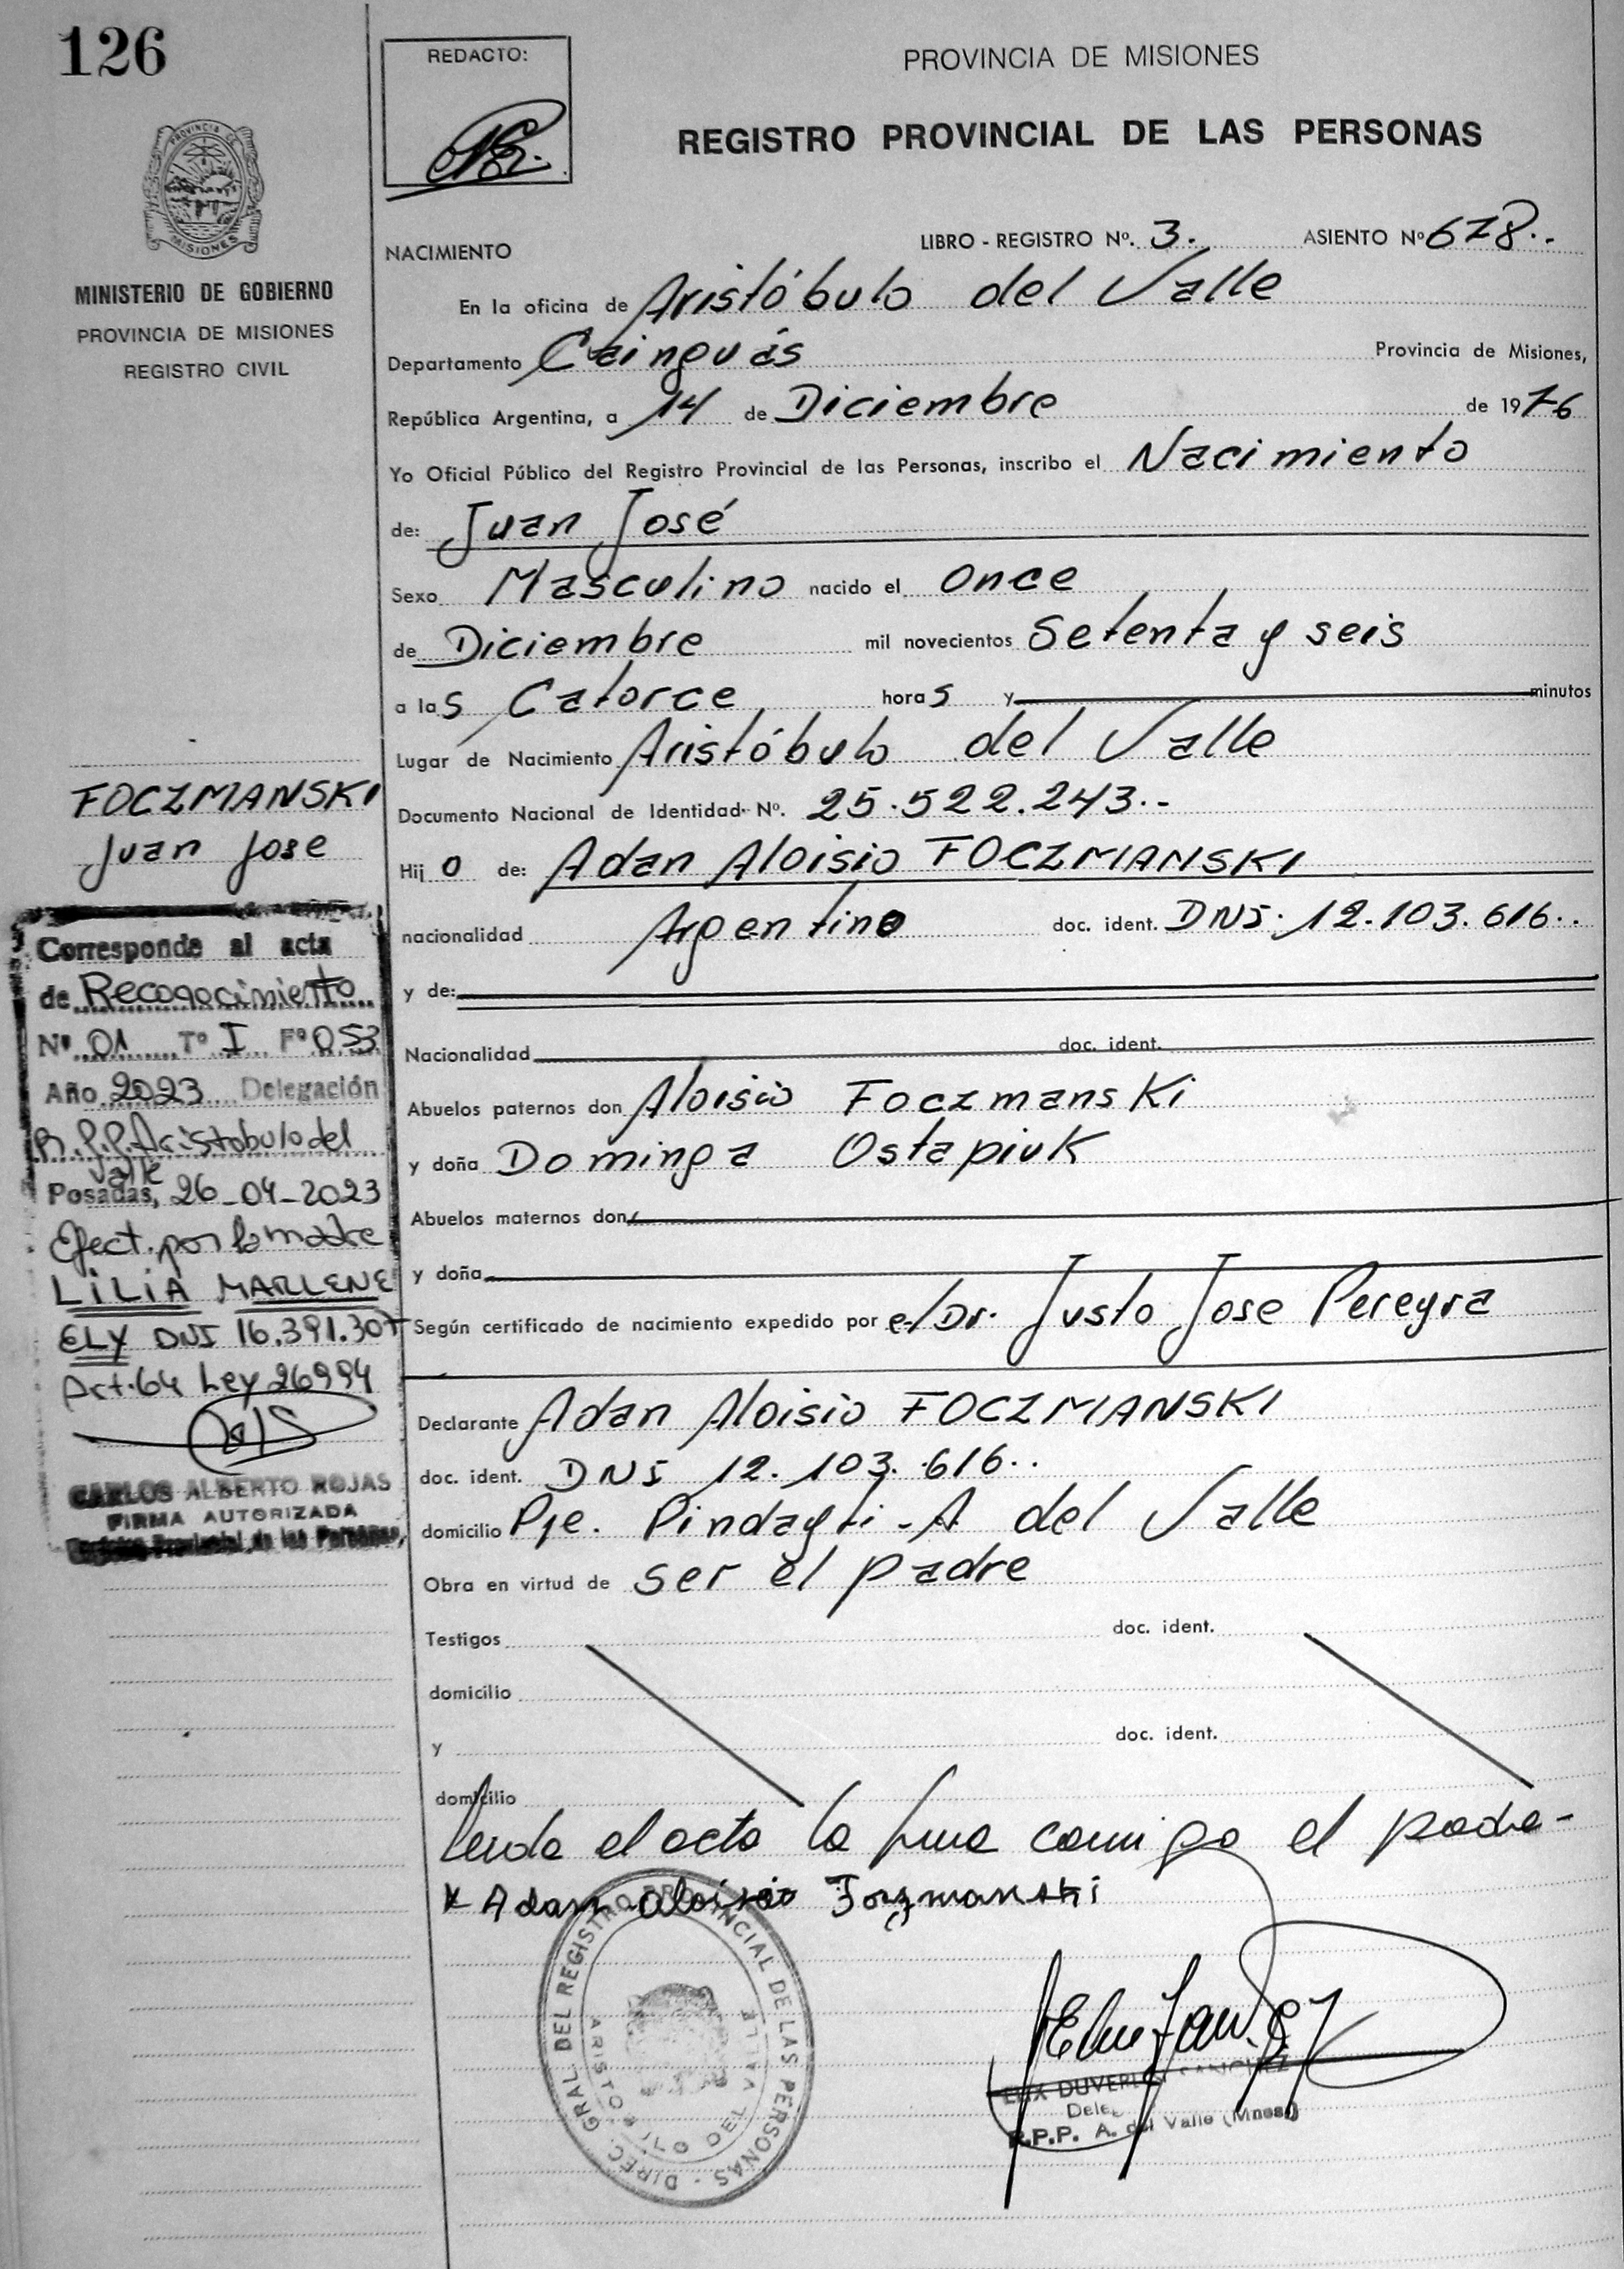 126
REDACTO:
PROVINCIA DE MISIONES
REGISTRO PROVINCIAL DE LAS PERSONAS
PROVINCIA
MISIONES
MINISTERIO DE GOBIERNO
PROVINCIA DE MISIONES
REGISTRO CIVIL
LIBRO - REGISTRO Nº. 3. ASIENTO Nº 678..
NACIMIENTO
En la oficina de Aristóbulo del Valle
Departamento Cainguás Provincia de Misiones,
República Argentina, a 14 de Diciembre de 1976
Yo Oficial Público del Registro Provincial de las Personas, inscribo el Nacimiento
de: Juan José
Sexo Masculino nacido el once
de Diciembre mil novecientos Setenta y seis
a las Catorce horas y minutos
Lugar de Nacimiento Aristóbulo del Valle
Documento Nacional de Identidad Nº. 25.522.243.-
Hijo de: Adan Aloisio FOCZMANSKI
nacionalidad Argentino doc. ident. DNI. 12.103.616..
y de:
Nacionalidad doc. ident.
Abuelos paternos don Aloisio Foczmanski
y doña Dominga Ostapiuk
Abuelos maternos don
y doña
Según certificado de nacimiento expedido por el Dr. Justo Jose Pereyra
Declarante Adan Aloisio FOCZMANSKI
doc. ident. DNI 12.103.616..
domicilio Pje. Pindayti - A del Valle
Obra en virtud de ser el padre
Testigos doc. ident.
domicilio
y doc. ident.
domicilio
el acta la firma conmigo el padre-
x Adan Aloisio Fozmanski
DIREC. GRAL. DEL REGISTRO PROVINCIAL DE LAS PERSONAS -
ARISTOBULO DEL VALLE
SANCHEZ
R.P.P. A. del Valle (Mnes)
FOCZMANSKI
Juan Jose
Corresponde al acta
de Reconocimiento
Nº 01 Tº I Fº 053
Año 2023 Delegación
R.P.P. Aristobulo del
Valle
Posadas, 26-04-2023
Efect. por la madre
LILIA MARLENE
ELY DNI 16.391.307
Art. 64 Ley 26994
CARLOS ALBERTO ROJAS
FIRMA AUTORIZADA
Registro Provincial de las Personas